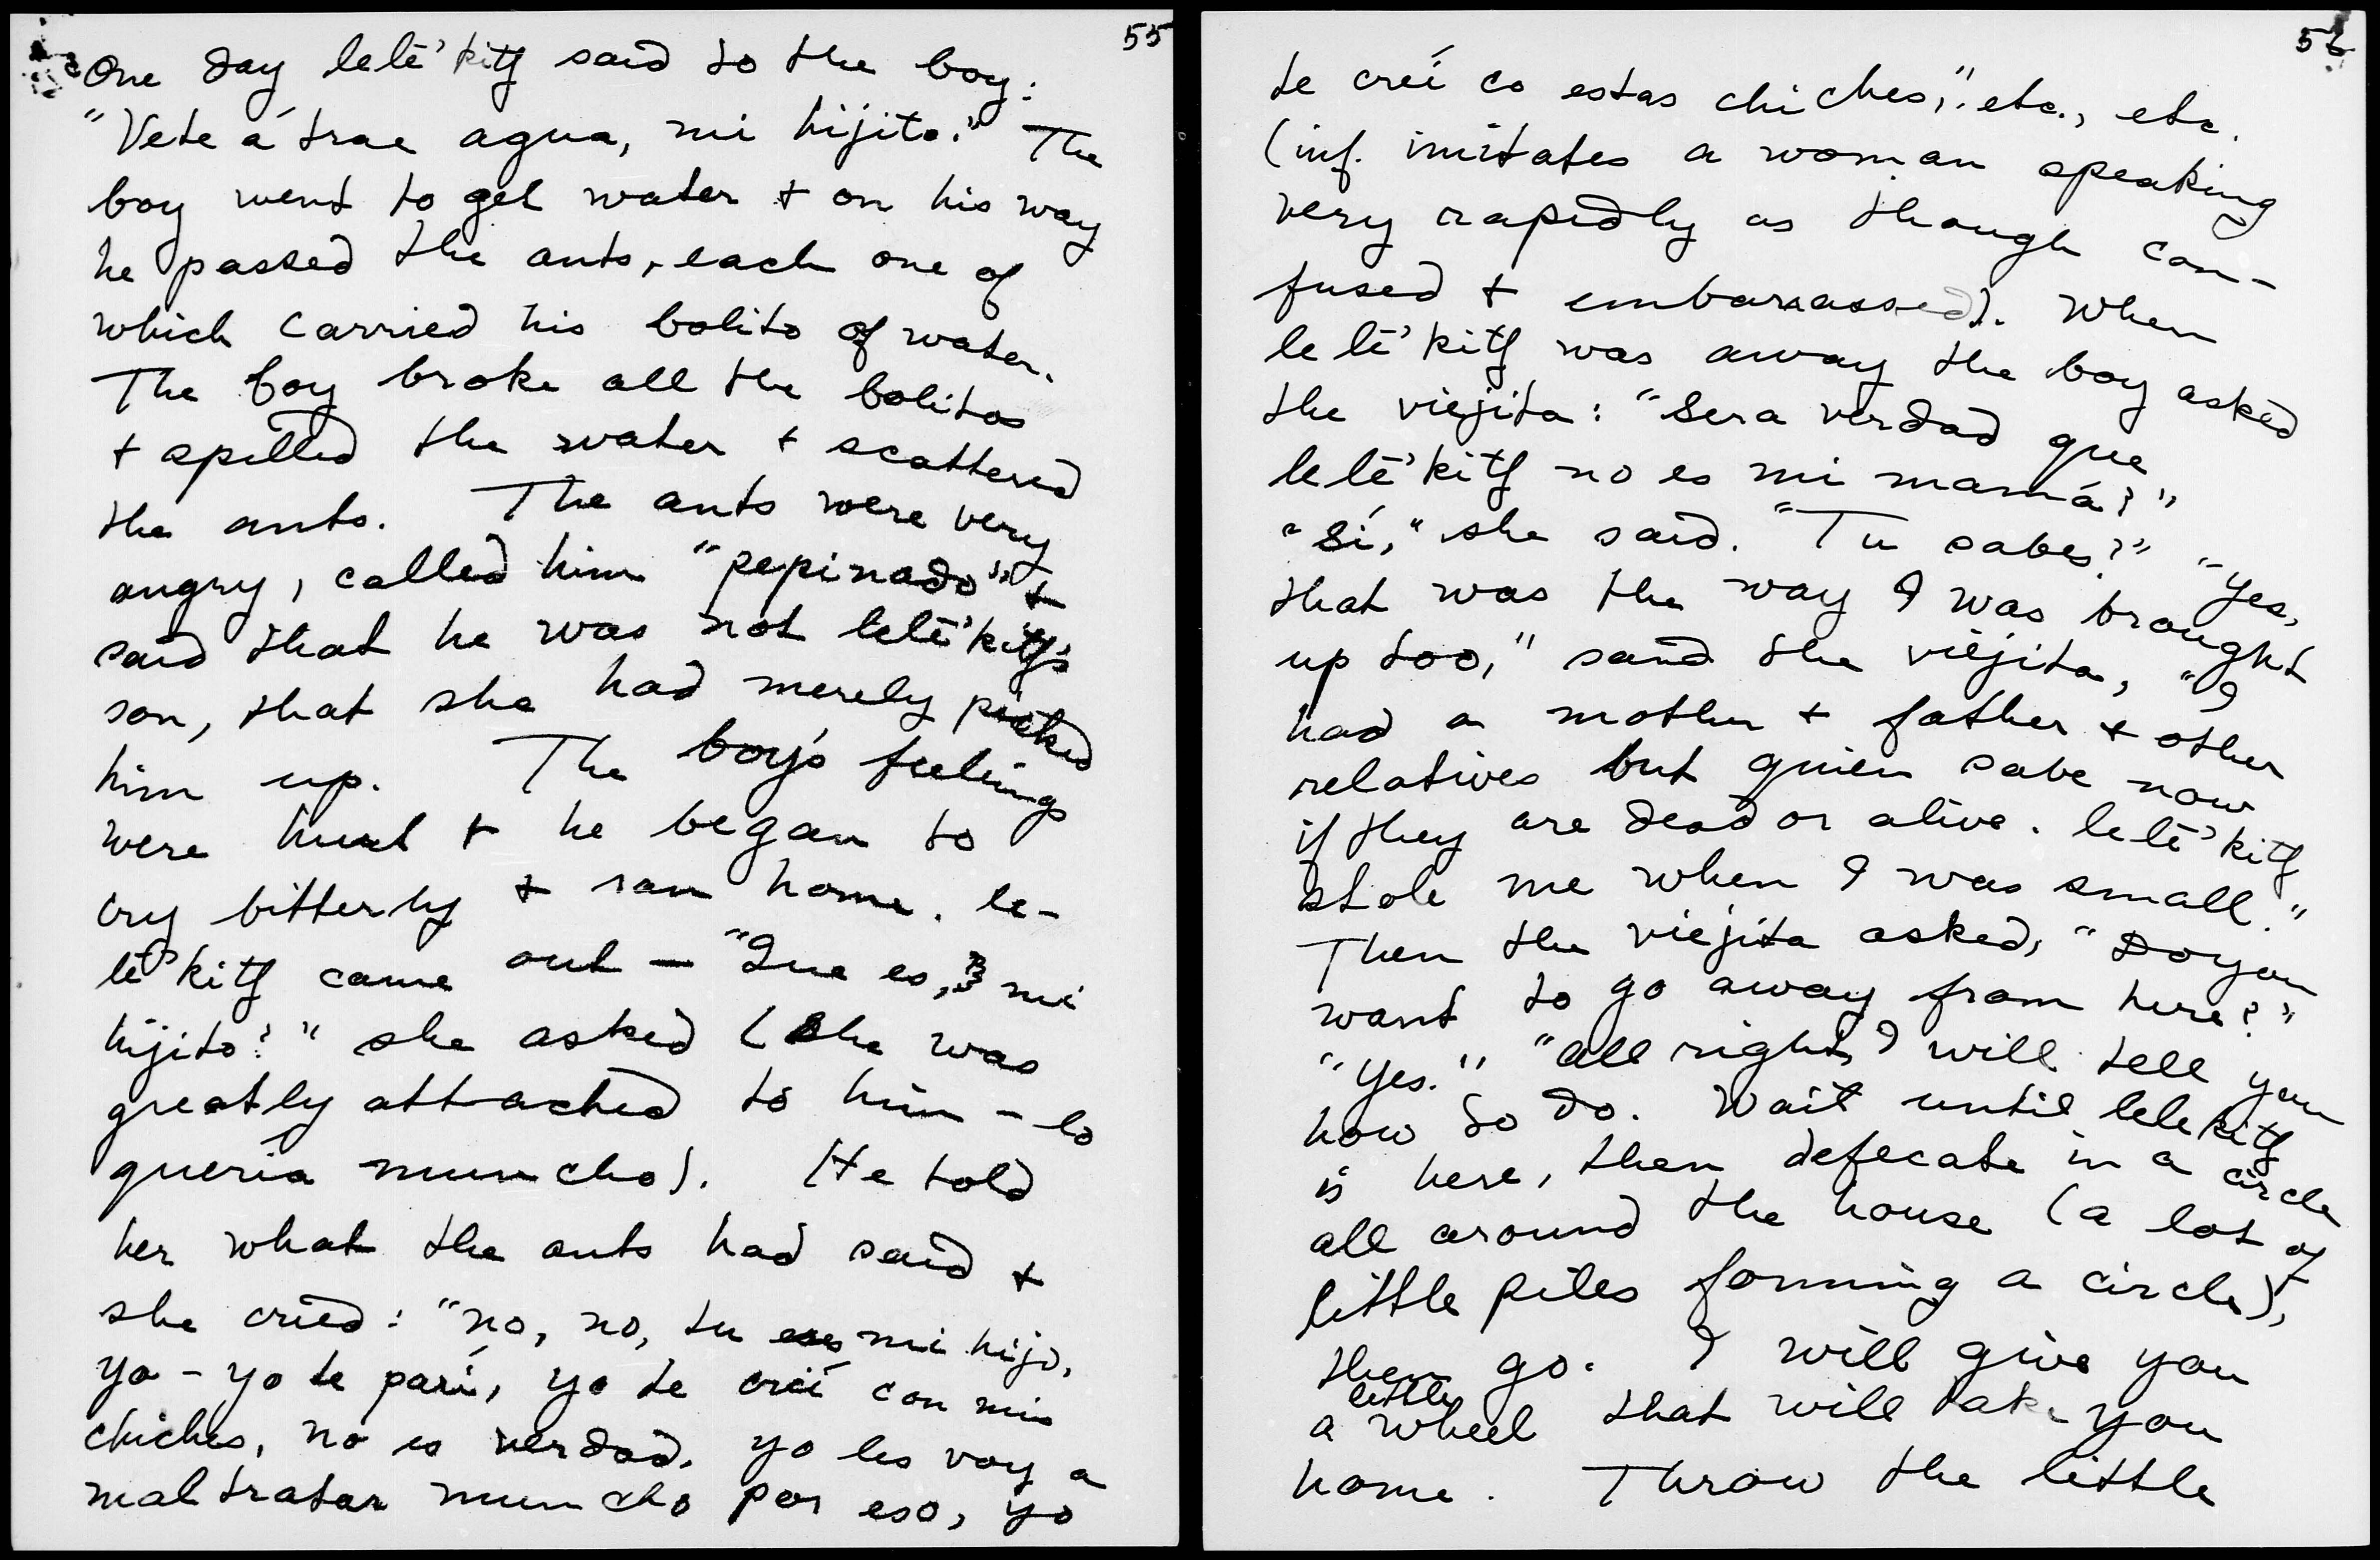 55
One day lelē'kitʃ said to the boy:
"Vete á trae agua, mi hijito." The
boy went to get water + on his way
he passed the ants, each one of
which carried his bolito of water.
The boy broke all the bolitos
+ spilled the water + scattered
the ants. The ants were very
angry, called him "pepinado" +
said that he was not lelē'kitʃ's
son, that she had merely picked
him up. The boy's feelings
were hurt + he began to
cry bitterly + ran home. le-
lē'kitʃ came out — "Que es, mi
hijito?" she asked (She was
greatly attached to him - lo
queria muncho). He told
her what the ants had said +
she cried: "no, no, tu eres mi hijo,
yo - yo te parí, yo te crié con mis
chiches, no es verdad. yo les voy a
maltratar muncho por eso, yo
56
te creí co estas chiches," etc., etc.
(inf. imitates a woman speaking
very rapidly as though con-
fused + embarrassed). When
lelē'kitʃ was away the boy asked
the viejita: "Sera verdad que
lelē'kitʃ no es mi mamá?"
"Sí," she said. "Tu sabes?" "Yes,
that was the way I was brought
up too," said the viejita, "I
had a mother + father + other
relatives but quien sabe now
if they are dead or alive. lelē'kitʃ
stole me when I was small."
Then the viejita asked, "Do you
want to go away from here?"
"Yes." "All right, I will tell you
how to do. Wait until lelekitʃ
is here, then defecate in a circle
all around the house (a lot of
little piles forming a circle),
then go. I will give you
little
a wheel that will take you
home. Throw the little